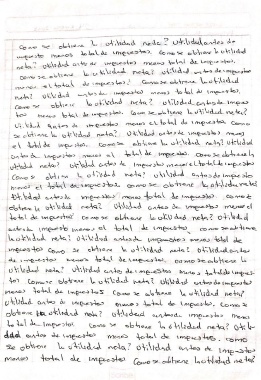 Como se obtiene la utilidad neta? Utilidad antes de
impuesto menos total de impuestos. Como se obtiene la utilidad
neta? Utilidad antes de impuestos menos total de impuestos.
como se obtiene la utilidad neta? Utilidad antes de impuestos
menos el total de impuestos. Como se obtiene la utilidad
neta? Utilidad antes de impuestos menos total de impuestos.
Como se obtiene la utilidad neta? utilidad antes de impues
tos menos total de impuestos. Como se obtiene la utilidad neta?
Utilidad antes de impuestos menos el total de impuestos Como
se obtiene la utilidad neta? Utilidad antes de impuestos menos
el total de impuestos. Como se obtiene la utilidad neta? Utilidad
antes de impuestos menos total de impuestos. Como se obtiene la
utilidad neta? Utilidad antes de impuestos menos el total de impuestos
Como se obtiene la utilidad neta? utilidad antes de impuesto
menos el total de impuestos. Como se obtiene la utilidad neta?
Utilidad antes de impuestos menos total de impuestos. Como se
obtiene la utilidad neta? Utilidad antes de impuestos menos el
total de impuestos Como se obtiene la utilidad neta? Utilidad
antes de impuesto menos el total de impuestos. como se obtiene
la utilidad neta? Utilidad antes de impuestos menos total de
impuestos Como se obtiene la utilidad neta? Utilidad antes
de impuestos menos total de impuestos. como se obtiene la
utilidad neta? Utilidad antes de impuestos menos total de impues
tos. Como se obtiene la utilidad neta? Utilidad antes de impuestos
menos total de impuestos Como se obtiene la utilidad neta?
Utilidad antes de impuestos menos total de impuestos. Como se
obtiene la utilidad neta? Utilidad antes de impuestos menos
total de impuestos Como se obtiene la utilidad neta? Utili-
dad antes de impuestos menos total de impuestos. como
se obtiene la utilidad neta? Utilidad antes de impuestos
menos total de impuestos Como se obtiene la utilidad neta?